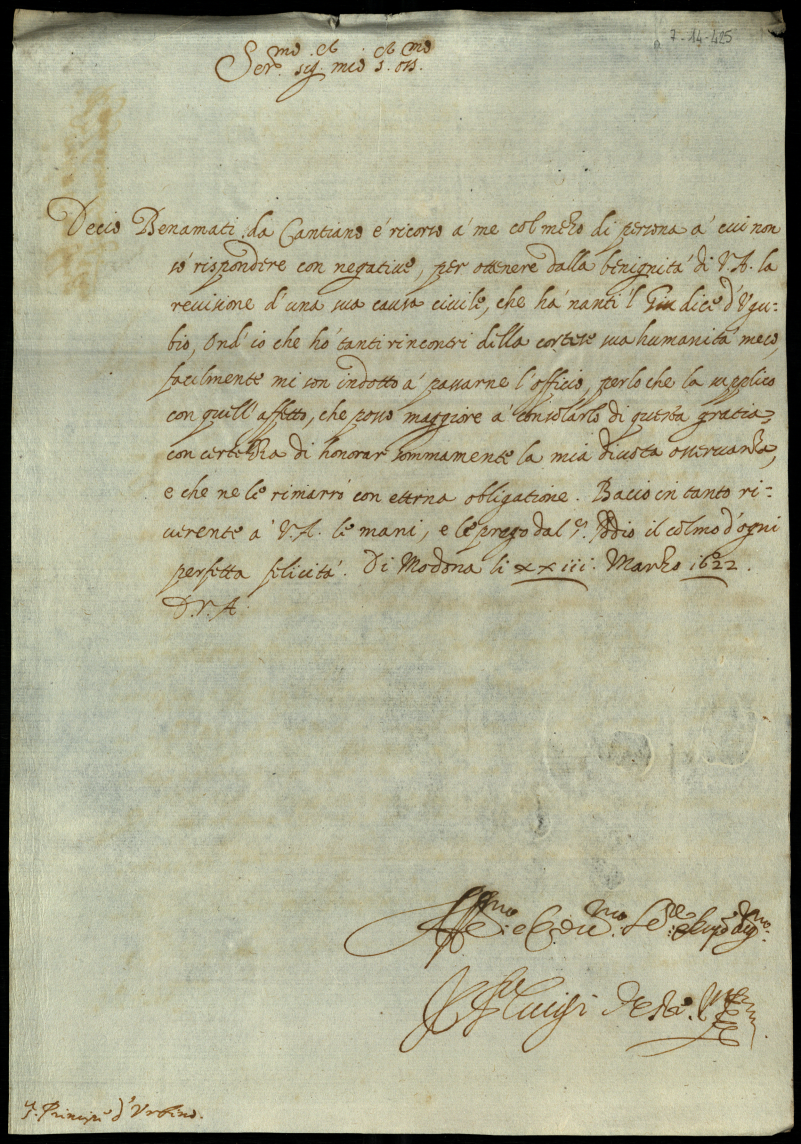 7-14-425
Ser.mo sig. mio s. oss.mo
Decio Benamati da Cantiano é ricorso á me col mezo di persona á cui non
só rispondere con negative, per ottenere dalla benignitá di V.A. la
revisione d'una sua causa civile, che há nanti 'l Giudice d'Ugu-
bio, Ond'io che hó tanti rincontri della cortese sua humanitá meco,
facilmente mi son indotto á passarne l'officio, perloche la supplico
con quell'affetto, che posso maggiore á consolarlo di questa gratia,
con certezza di honorar sommamente la mia divota osservanza,
e che ne le rimarró con eterna obligatione. Bacio in tanto ri-
verente á V.A. le mani, e le prego dal s. Iddio il colmo d'ogni
perfetta felicitá. Di Modona li xxiii. Marzo 1622.
D.V.A.
Aff.mo
Luigi d'Este
S. Principe d'Urbino.